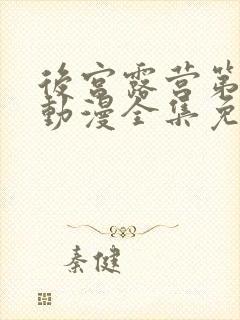 後宮露营第
動漫全集免
秦健